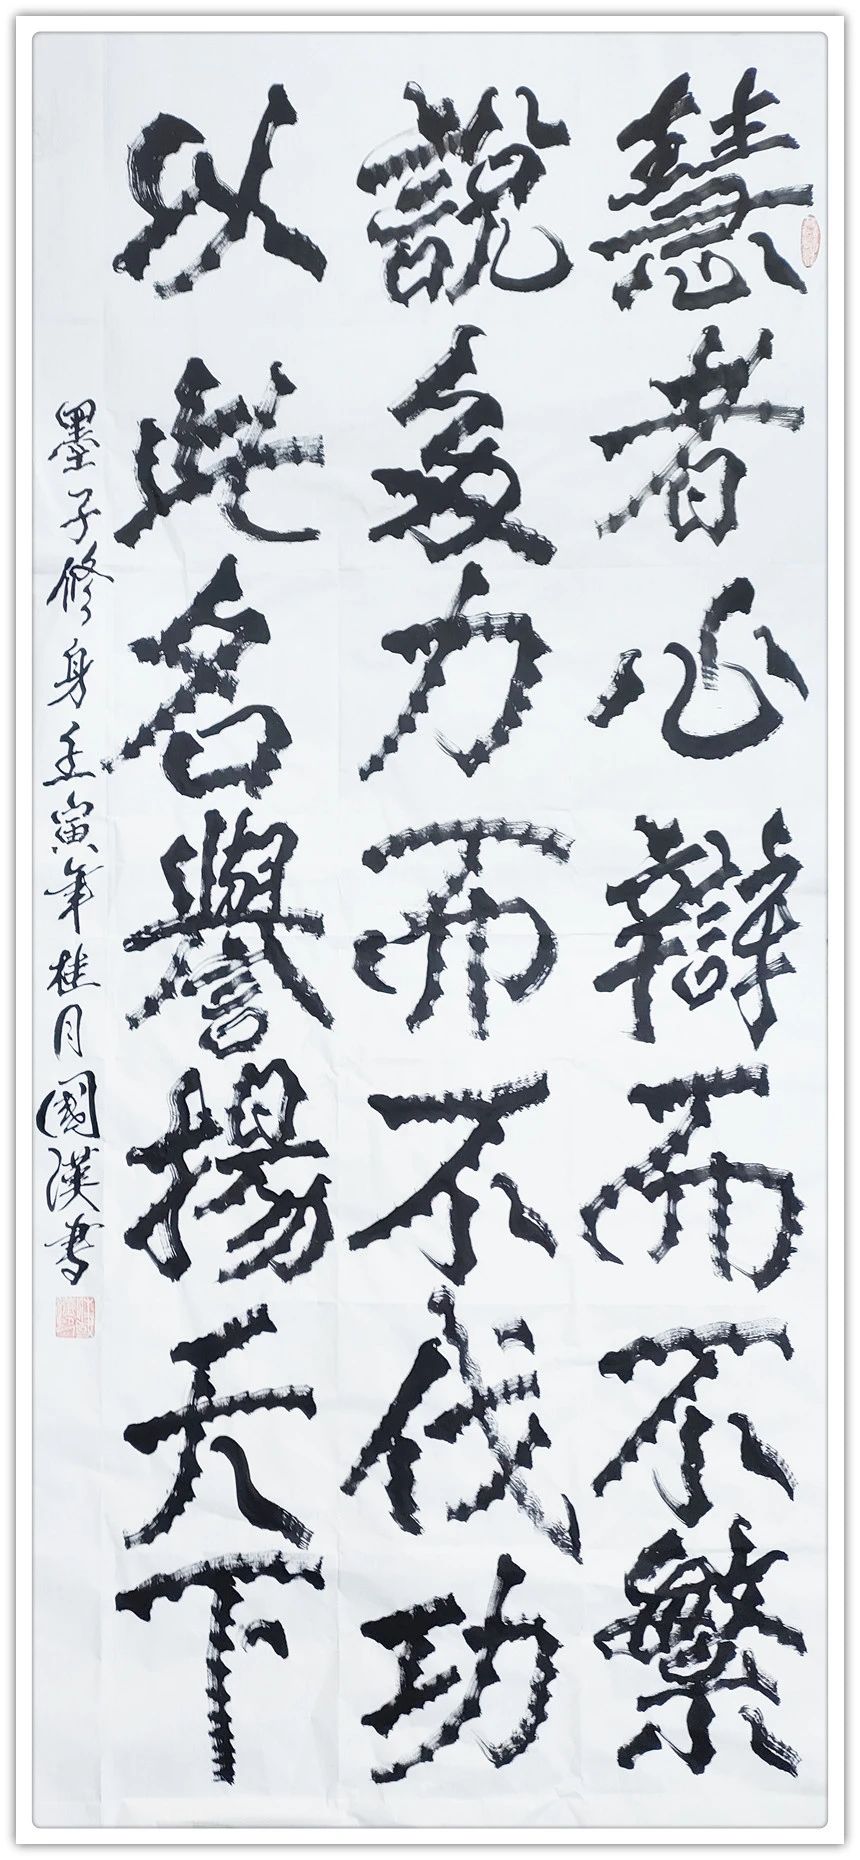 慧者心辯而不繁
說多力而不伐功
以此名譽揚天下
墨子修身壬寅年桂月國漢書